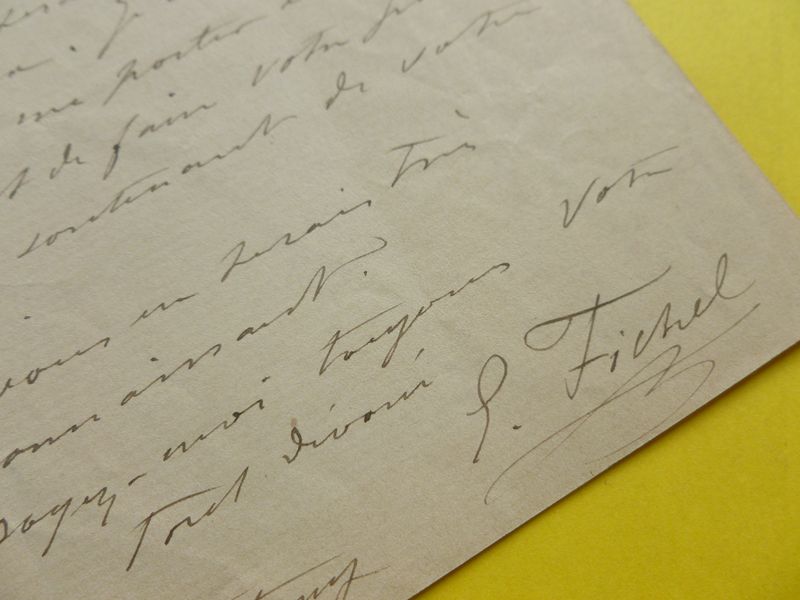 me porter
de faire votre
soutenant de votre
vous en serais très
onnaissant.
royez-moi toujours votre
tout dévoué
E. Fichel